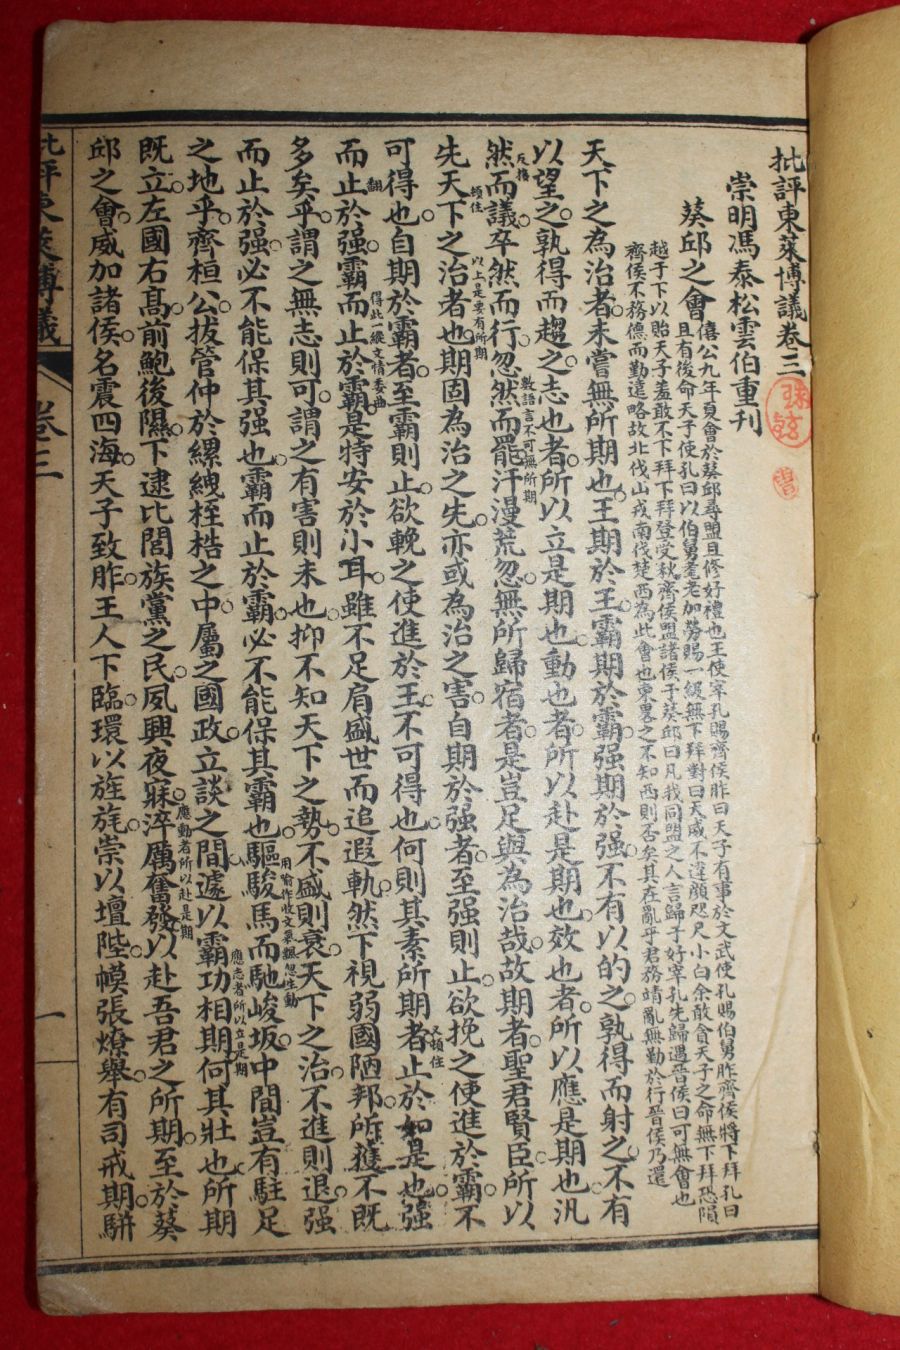 批評東萊博議卷三
崇明馮泰松雲伯重刊
葵邱之會
僖公九年夏會於葵邱尋盟且修好禮也王使宰孔賜齊侯胙曰天子有事於文武使孔賜伯舅胙齊侯將下拜孔曰
且有後命天子使孔曰以伯舅耄老加勞賜一級無下拜對曰天威不違顏咫尺小白余敢貪天子之命無下拜恐隕
越于下以貽天子羞敢不下拜下拜登受秋齊侯盟諸侯于葵邱曰凡我同盟之人言歸于好宰孔先歸遇晉侯曰可無會也
齊侯不務德而勤遠略故北伐山戎南伐楚西為此會也東畧之不知西則否矣其在亂乎君務靖亂無勤於行晉侯乃還
天下之為治者未嘗無所期也王期於王霸期於霸强期於强不有以的之孰得而射之不有
以望之孰得而趨之志也者所以立是期也動也者所以赴是期也效也者所以應是期也汎
然而議卒然而行忽然而罷汗漫荒忽無所歸宿者是豈足與為治哉故期者聖君賢臣所以
反掉
數語言不可無所期
先天下之治者也期固為治之先亦或為治之害自期於强者至强則止欲挽之使進於霸不
頓住
以上是要有所期
可得也自期於霸者至霸則止欲輓之使進於王不可得也何則其素所期者止於如是也强
又頓住
而止於强霸而止於霸是特安於小耳雖不足肩盛世而追遐軌然下視弱國陋邦所獲不既
翻
得此一緩文情委曲
多矣乎謂之無志則可謂之有害則未也抑不知天下之勢不盛則衰天下之治不進則退强
而止於强必不能保其强也霸而止於霸必不能保其霸也驅駿馬而馳峻坂中間豈有駐足
用喻作收文氣飄忽生動
之地乎齊桓公拔管仲於縲絏桎梏之中屬之國政立談之間遽以霸功相期何其壯也所期
應志者所以立是期
既立左國右髙前鮑後隰下逮比閭族黨之民夙興夜寐淬厲奮發以赴吾君之所期至於葵
應動者所以赴是期
邱之會威加諸侯名震四海天子致胙王人下臨環以旌旄崇以壇陛幙張燎舉有司戒期駢
批評東萊博議
卷三
一